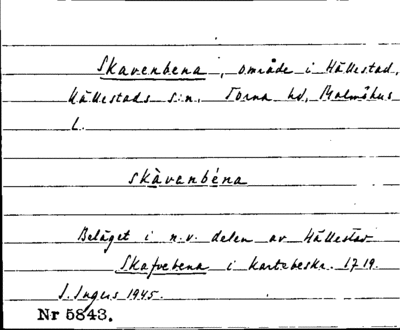 Skavenbena, område i Hällestad,
Hällestads s:n, Torna hd, Malmöhus
L.
skàvanbéna
Beläget i n.v. delen av Hällestad
Skafvebena i kartebeskr. 1719.
I. Ingers 1945.
Nr 5843.